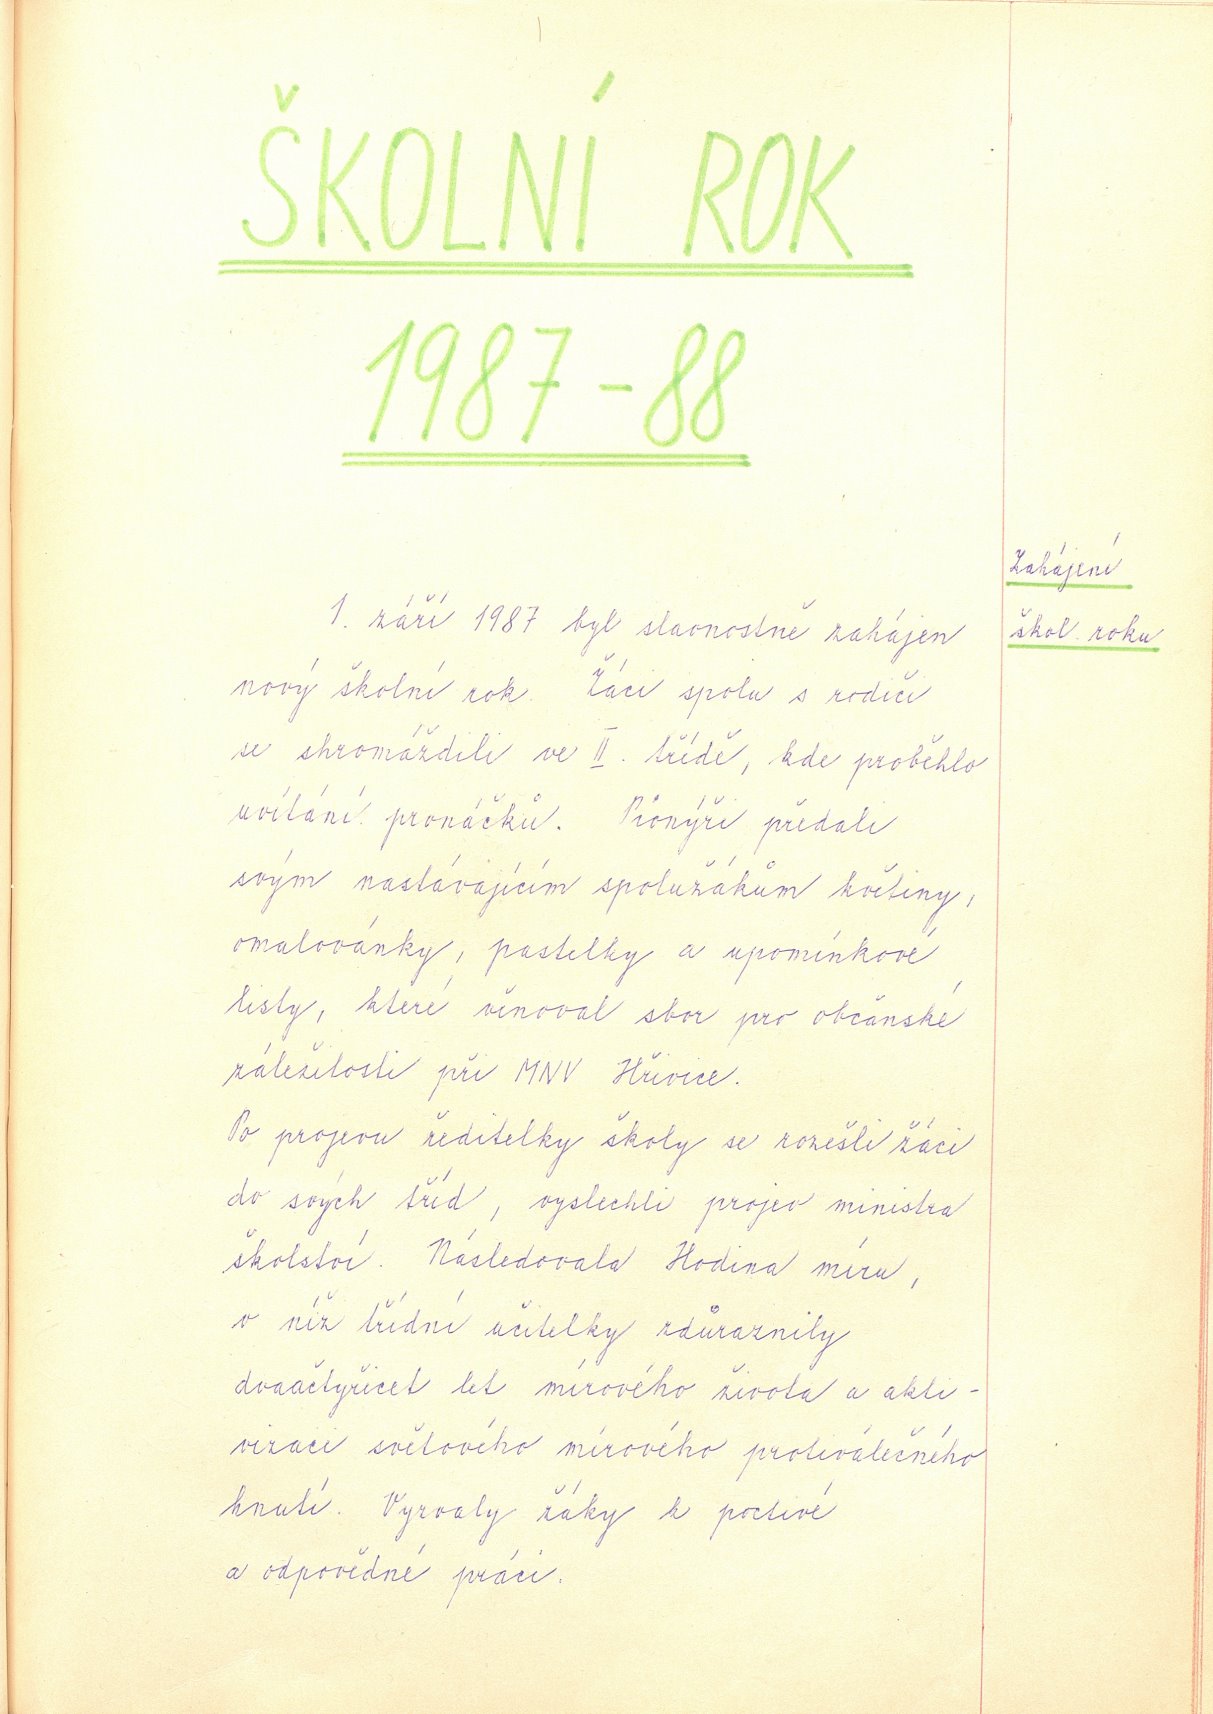 ŠKOLNÍ ROK
1987 - 88
Zahájení
škol. roku
1. září 1987 byl slavnostně zahájen
nový školní rok. Žáci spolu s rodiči
se shromáždili ve II. třídě, kde proběhlo
uvítání prvňáčků. Pionýři předali
svým nastávajícím spolužákům květiny,
omalovánky, pastelky a upomínkové
listy, které věnoval sbor pro občanské
záležitosti při MNV Hřivice.
Po projevu ředitelky školy se rozešli žáci
do svých tříd, vyslechli projev ministra
školství. Následovala Hodina míru,
v níž třídní učitelky zdůraznily
dvaačtyřicet let mírového života a akti-
vizaci světového mírového protiválečného
hnutí. Vyzvaly žáky k poctivé
a odpovědné práci.